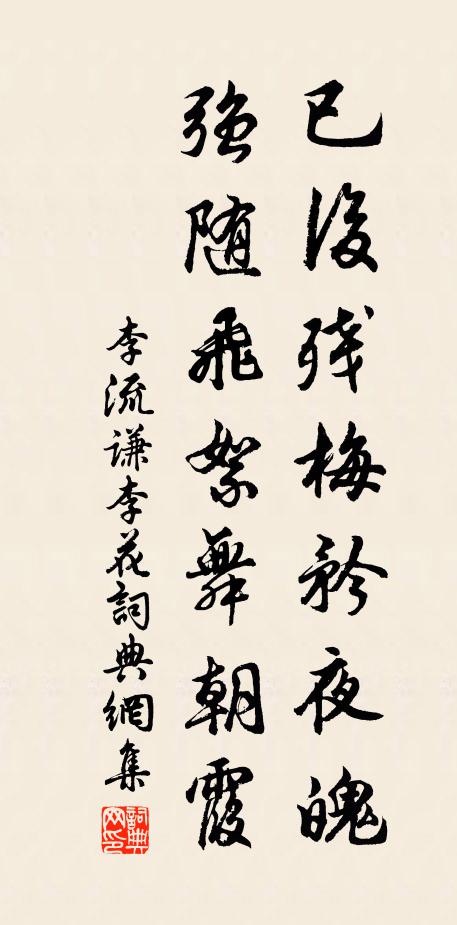 已後残梅矜夜魄
強随飛絮舞朝霞
李流谦李花詞典網集
詞典网印